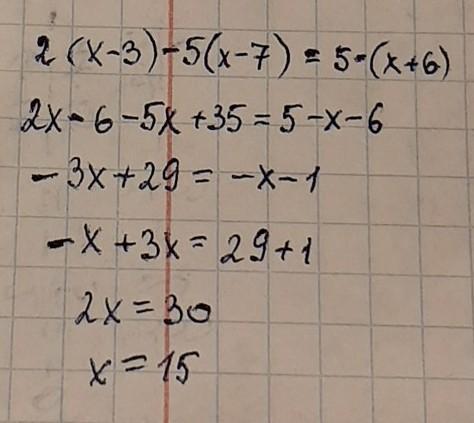 2(x-3)-5(x-7)=5-(x+6)
2x-6-5x+35=5-x-6
-3x+29=-x-1
-x+3x=29+1
2x=30
x=15